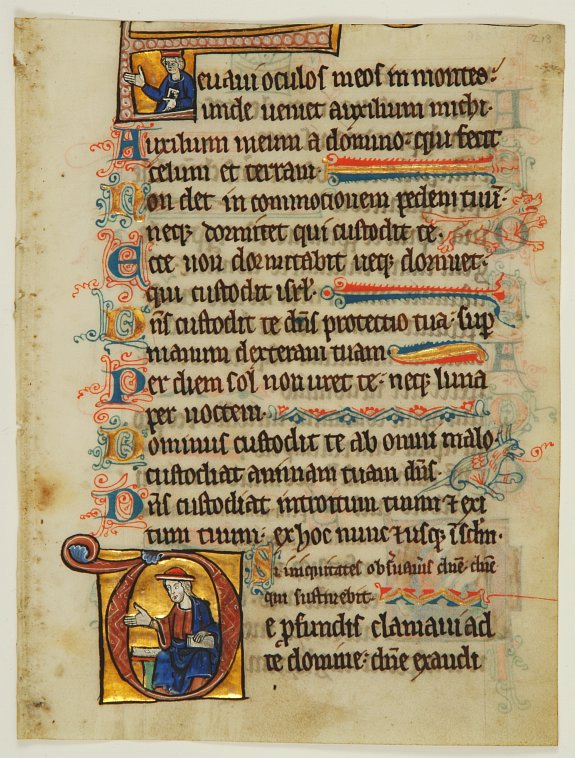 Levavi oculos meos in montes:
unde veniet auxilium michi.
Auxilium meum a domino: qui fecit
celum et terram.
Non det in commotionem pedem tuū:
neqꝫ dormitet qui custodit te.
Ecce non dormitabit neqꝫ dormiet:
qui custodit isrl̄.
Dn̄s custodit te dn̄s protectio tua: sup̄
manum dexteram tuam.
Per diem sol non uret te: neqꝫ luna
per noctem.
Dominus custodit te ab omni malo:
custodiat animam tuam dn̄s.
Dn̄s custodiat introitum tuum ⁊ exi
tum tuum: ex hoc nunc ⁊ usqꝫ ī sclm̄.
Si iniquitates obſuaūis dn̄e: dn̄e
quis sustinebit.
De ꝓfundis clamavi ad
te domine: dn̄e exaudi